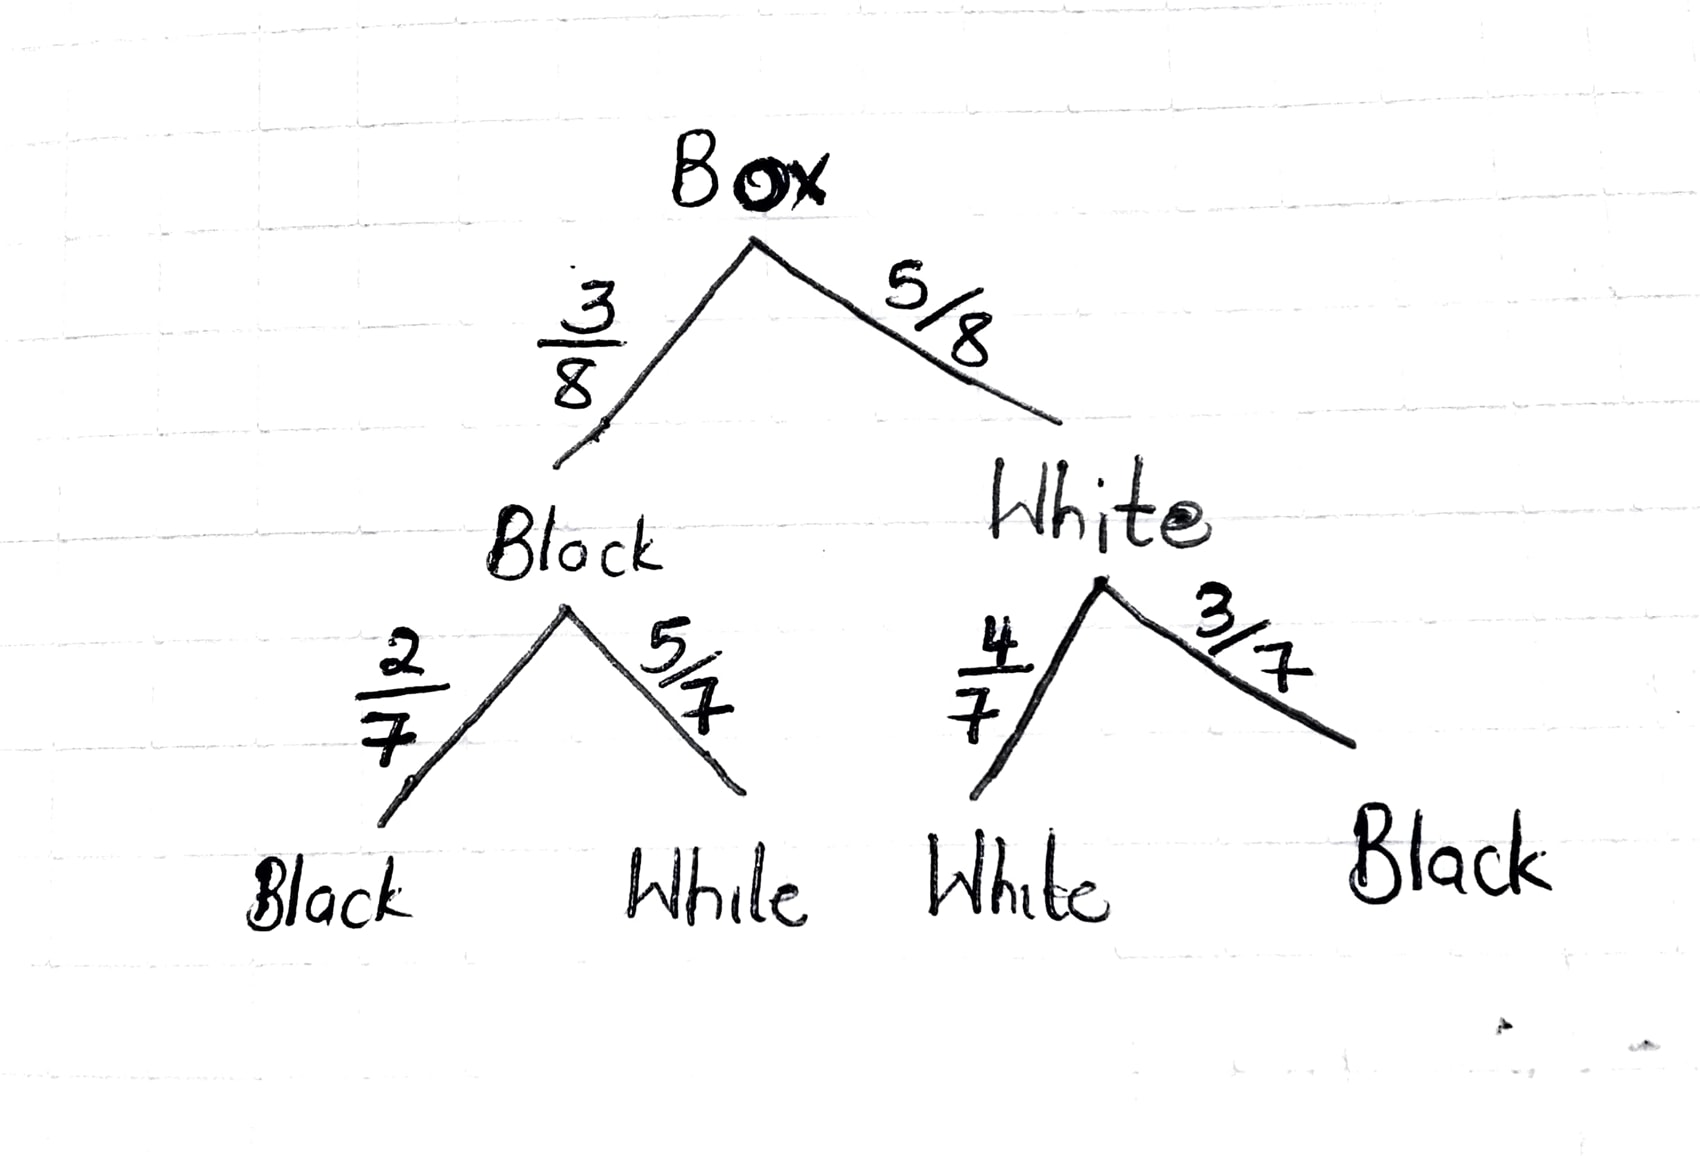 Box
3/8 5/8
Black White
2/7 5/7 4/7 3/7
Black While White Black